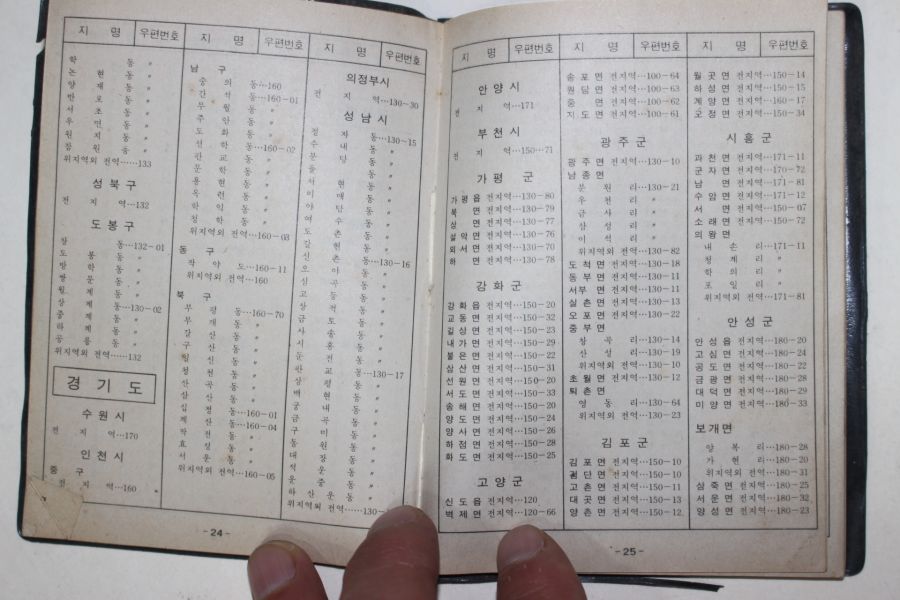 지 명 우편번호
학 동 〃
논 현 동 〃
양 재 동 〃
반 포 동 〃
서 초 동 〃
우 면 동 〃
원 지 동 〃
잠 원 동 〃
위지역외 전역……133
성북구
전 지 역…132
도봉구
창 동…132-01
도 봉 동 〃
방 학 동 〃
쌍 문 동 〃
월 계 동 〃
상 계 동…130-02
중 계 동 〃
하 계 동 〃
공 릉 동 〃
위지역외 전역……132
경기도
수원시
전 지 역…170
인천시
중 구
전 지 역…160
지 명 우편번호
남 구
숭 의 동…160
간 석 동…160-01
구 월 동 〃
주 안 동 〃
도 화 동 〃
선 학 동…160-02
관 교 동 〃
문 학 동 〃
용 현 동 〃
동 〃
학 익 동 〃
청 학 동 〃
위지역외 전역…160-03
동 구
작 약 도…160-11
위지역외 전역…160
북 구
부 평 동…160-70
부 개 동 〃
갈 산 동 〃
구 산 동 〃
일 신 동 〃
청 천 동 〃
산 곡 동 〃
삼 산 동 〃
십 정 동…160-01
계 산 동…160-04
작 전 동 〃
효 성 동 〃
서 운 동 〃
위지역외 전역…160-05
지 명 우편번호
의정부시
전 지 역…130-30
성남시
정 자 동…130-15
수 내 동 〃
분 당 동 〃
율 동 〃
서 현 동 〃
이 매 동 〃
야 탑 동 〃
여 수 동 〃
도 촌 동 〃
갈 현 동 〃
신 촌 동…130-16
오 야 동 〃
심 곡 동 〃
고 등 동 〃
상 적 동 〃
금 토 동 〃
사 송 동 〃
시 흥 동 〃
둔 전 동 〃
판 교 동…130-17
삼 평 동 〃
백 현 동 〃
궁 내 동 〃
금 곡 동 〃
구 미 동 〃
동 원 동 〃
대 장 동 〃
석 운 동 〃
하 산 운 동 〃
위지역외 전역……130-
-24-
지 명 우편번호
안양시
전 지 역…171
부천시
전 지 역…150…71
가평 군
가평읍 전지역…130-80
북 면 전지역…130-79
상 면 전지역…130-77
설악면 전지역…130-76
외서면 전지역…130-70
하 면 전지역…130-78
강화군
강화읍 전지역…150-20
교동면 전지역…150-32
길상면 전지역…150-23
내가면 전지역…150-29
불은면 전지역…150-22
삼산면 전지역…150-31
선원면 전지역…150-20
서도면 전지역…150-33
송해면 전지역…150-20
양도면 전지역…150-24
양사면 전지역…150-26
하점면 전지역…150-28
화도면 전지역…150-25
고양군
신도읍 전지역…120
벽제면 전지역…120-66
지 명 우편번호
송포면 전지역…100-64
원당면 전지역…100-63
중 면 전지역…100-62
지도면 전지역…100-61
광주군
광주면 전지역…130-10
남종면
분 원 리…130-21
우 천 리 〃
금 사 리 〃
삼 성 리 〃
이 석 리 〃
위지역외 전역…130-82
도척면 전지역…130-18
동부면 전지역…130-11
서부면 전지역…130-11
실촌면 전지역…130-13
오포면 전지역…130-22
중부면
창 곡 리…130-14
산 성 리…130-19
위지역외 전역…130-10
초월면 전지역…130-12
퇴촌면
영 동 리…130-64
위지역외 전역…130-23
김포군
김포면 전지역…150-10
검단면 전지역…150-10
고촌면 전지역…150-11
대곶면 전지역…150-13
양촌면 전지역…150-12
지 명 우편번호
월곶면 전지역…150-14
하성면 전지역…150-15
계양면 전지역…160-17
오정면 전지역…150-34
시흥군
과천면 전지역…171-11
군자면 전지역…170-72
남 면 전지역…171-81
수암면 전지역…171-12
서 면 전지역…150-07
소래면 전지역…150-72
의왕면
내 손 리…171-11
청 계 리 〃
학 의 리 〃
포 일 리 〃
위지역외 전역…171-81
안성군
안성읍 전지역…180-20
고삼면 전지역…180-24
공도면 전지역…180-22
금광면 전지역…180-28
대덕면 전지역…180-29
미양면 전지역…180-33
보개면
양 복 리…180-28
가 현 리…180-20
위지역외 전역…180-31
삼죽면 전지역…180-25
서운면 전지역…180-32
양성면 전지역…180-23
-25-